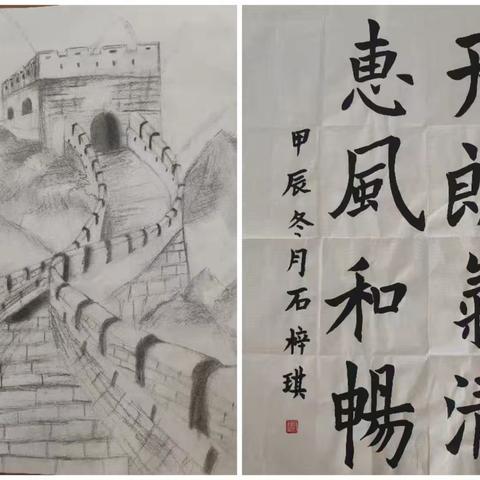 天朗氣清
恵風和暢
甲辰冬月石梓琪